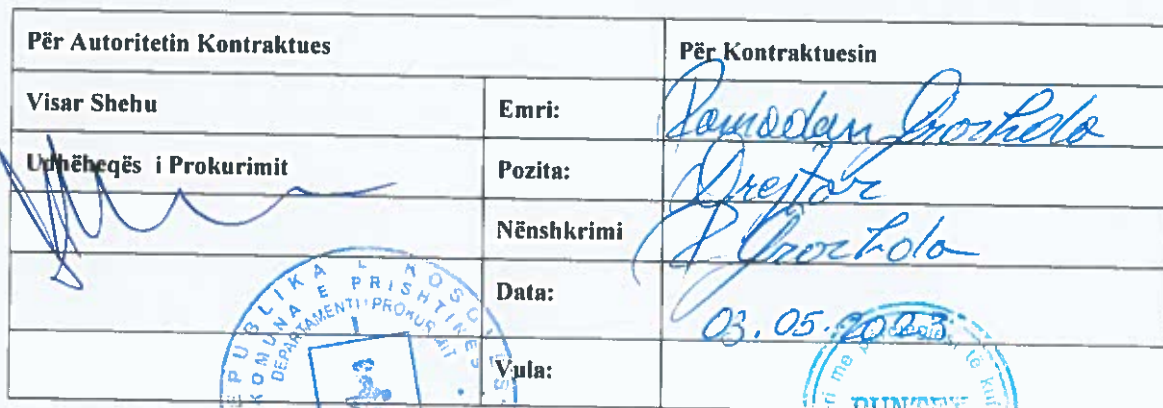 Për Autoritetin Kontraktues Për Kontraktuesin
Visar Shehu Emri: Ramadan
Udhëheqës i Prokurimit Pozita: Drejtor
Nënshkrimi
Data: 03.05.2023
Vula:
REPUBLIKA E KOSO
KOMUNA E PRISHTINËS
DEPARTAMENTI I PROKURIMIT
PUNTEX